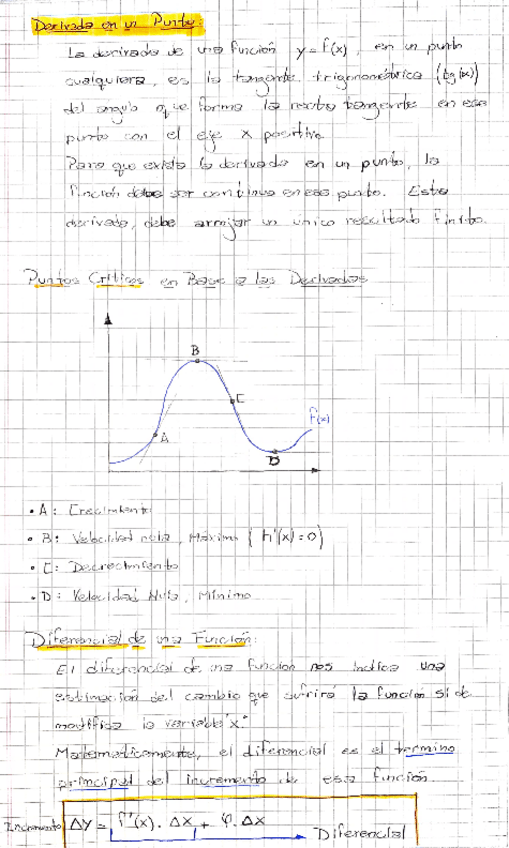 Derivada en un Punto:
La derivada de una función y=f(x), en un punto
cualquiera, es la tangente trigonométrica (tg(x))
del angulo que forma la recta tangente en ese
punto con el eje x positivo.
Para que exista la derivada en un punto, la
función debe ser continua en ese punto. Esta
derivada, debe arrojar un único resultado finito.
Puntos Críticos en Base a las Derivadas
B
C
f(x)
A
D
• A: Crecimiento
• B: Velocidad nula, Máximo (f'(x)=0)
• C: Decrecimiento
• D: Velocidad Nula, Mínimo
Diferencial de una Función:
El diferencial de una función nos indica una
estimación del cambio que sufrirá la función si se
modifica la variable "x"
Matematicamente, el diferencial es el termino
principal del incremento de esa función.
Incremento ΔY = f'(x). ΔX + φ. ΔX
Diferencial